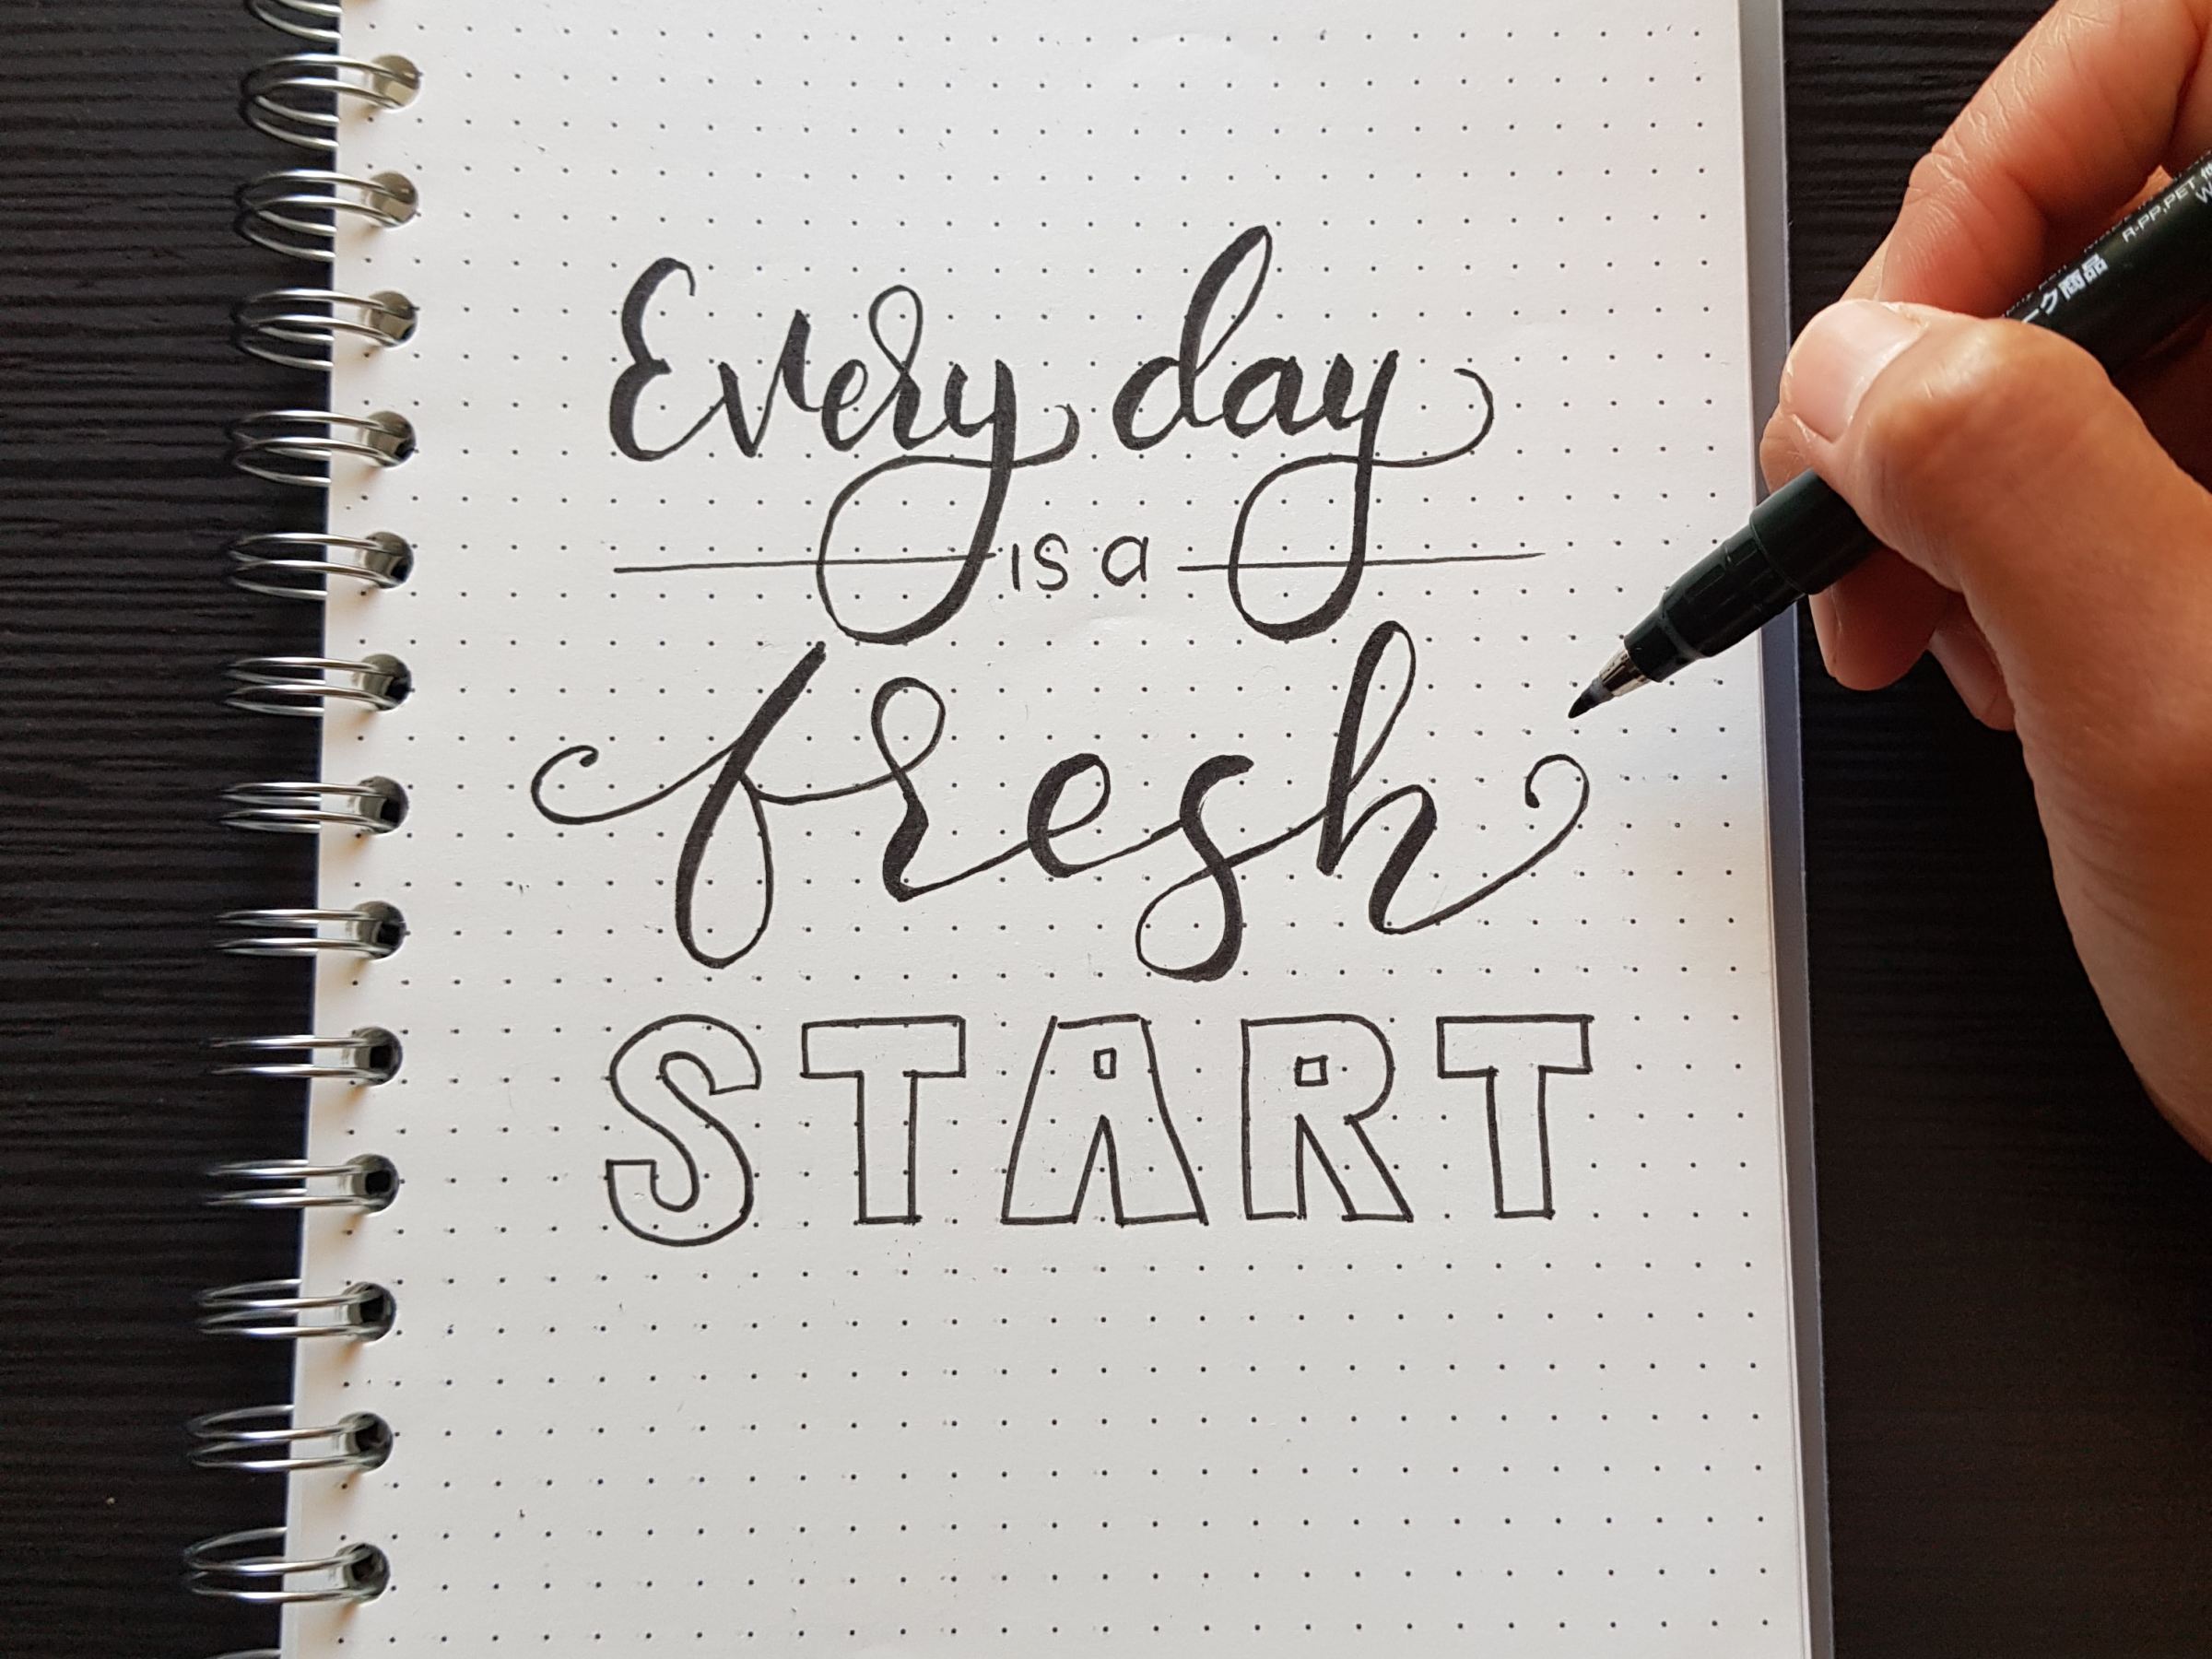 Every day
is a
fresh
START
R-PP,PET
ーク商品